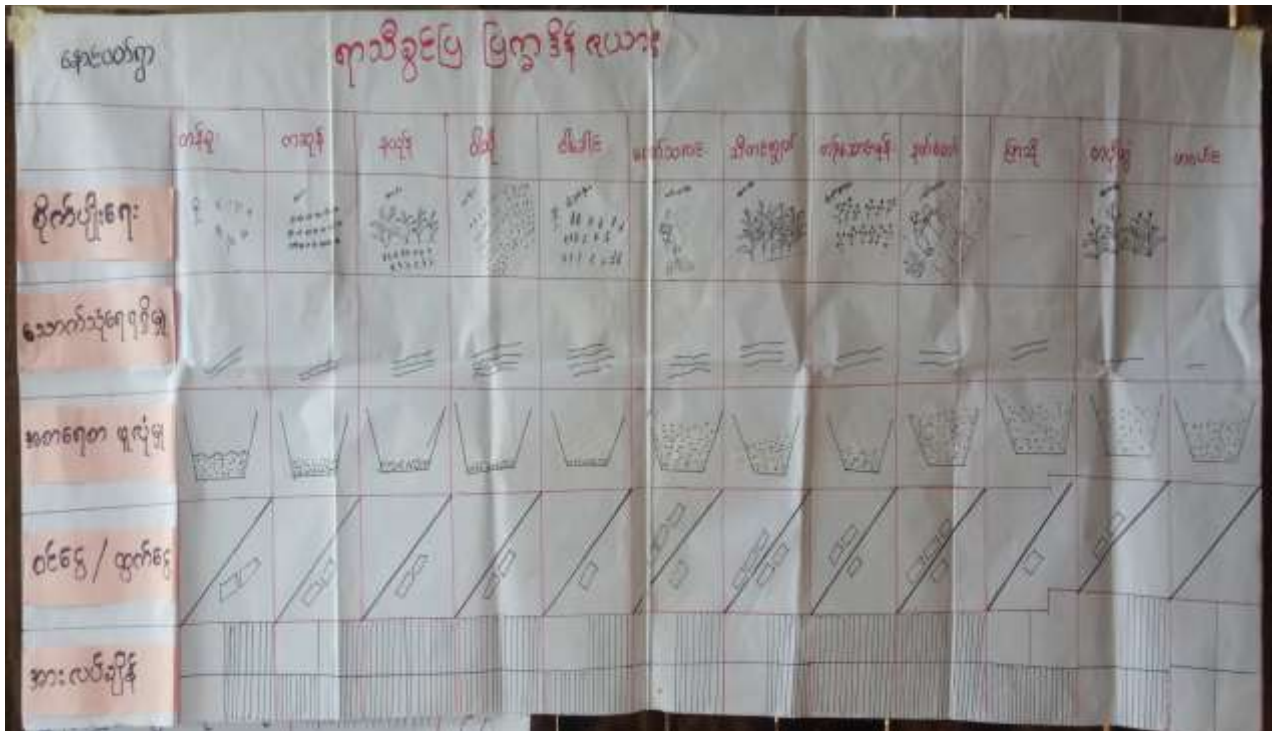 နောင်ပတ်ရွာ
ရာသီခွင်ပြ ပြက္ခဒိန် ဇယား
တန်ခူး ကဆုန် နယုန် ဝါဆို ဝါခေါင် တော်သလင်း သီတင်းကျွတ် တန်ဆောင်မုန်း နတ်တော် ပြာသို တပို့တွဲ တပေါင်း
စိုက်ပျိုးရေး
သောက်သုံးရေရရှိမှု
အစားရေစာ ဖူလုံမှု
ဝင်ငွေ / ထွက်ငွေ
အားလပ်ချိန်